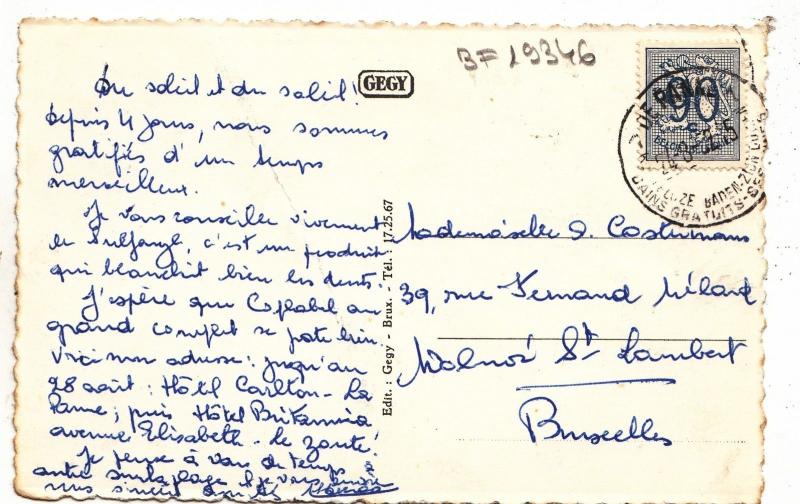 B = 19346
Du soleil et du soleil!
GEGY
Depuis 4 jours, nous sommes
gratifiés d'un temps
merveilleux.
Je vous conseille vivement
le Sulfanyl, c'est un produit
qui blanchit bien les dents.
J'espère que au
grand complet se porte bien.
Voici mon adresse: jusqu'au
28 août: Hôtel Carlton - La
Panne, puis Hôtel Britannia
avenue Elisabeth - le Zoute.
Je pense à vous de temps à
autre sur la plage & je vous envoie
mes sincères amitiés
Edit. : Gegy - Brux. - Tél. : 17.25.67
90
BAINS GRATUITS
Mademoiselle J. Costermans
39, rue Fernand Mélard
Woluwé St Lambert
Bruxelles